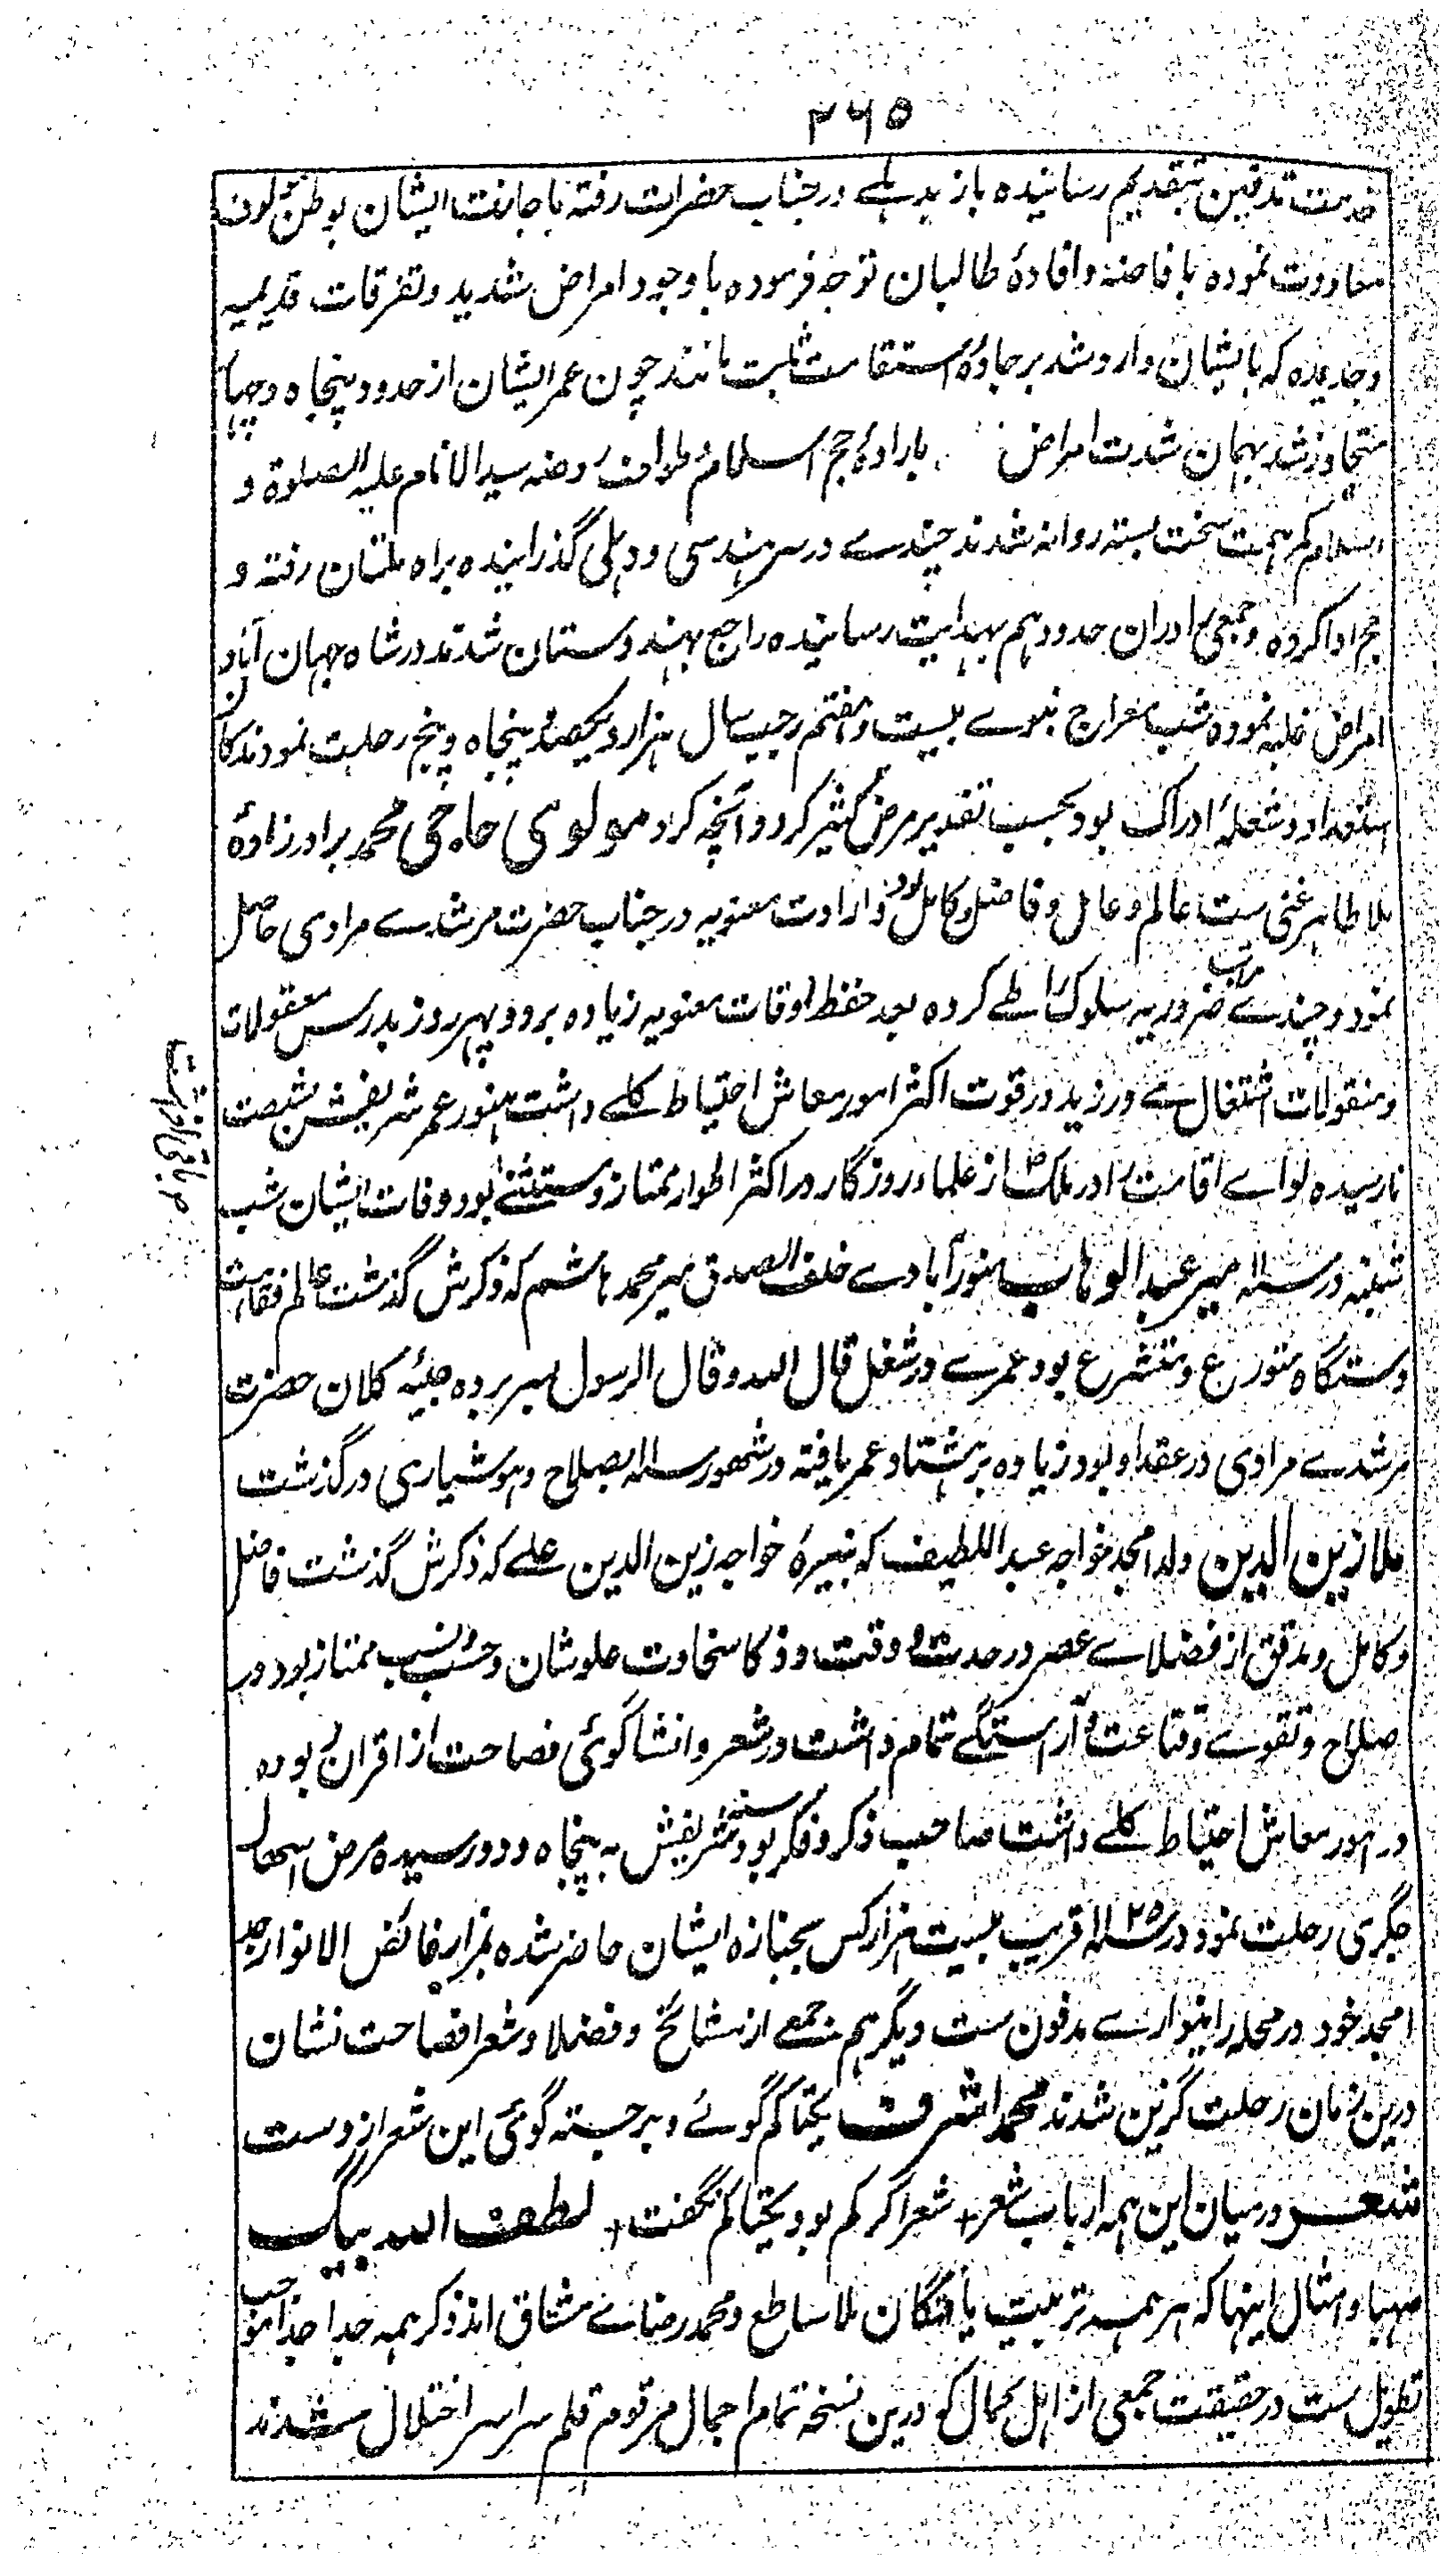 ۲۶۵
خدمت تدفین بتقدیم رسانیده باز بدهلے در جناب حضرات رفته با جازت ایشان بوطن مالوف
معاودت نموده بافاضه و افادهٔ طالبان توجه فرموده با وجود امراض شدید و تفرقات قدیمیه
و جدیده که بایشان وارد شد بر جادهٔ استقامت ثابت ماندند چون عمر ایشان از حدود پنجاه و چهار
متجاوز شد بهمان شدت امراض بارادهٔ حج اسلام و طواف روضه سید الانام علیه الصلوة و
السلام کمر همت سخت بسته روانه شدند چندے در سرهندی و دهلی گذرانیده براه ملتان رفته و
حج ادا کرده و جمعی را دران حدود هم بهدایت رسانیده راجع بهندوستان شدند در شاه جهان آباد
امراض غلبه نموده شب معراج نبوے بیست و هفتم رجب سال هزار و یکصد و پنجاه و پنج رحلت نمودند کان
استعداد و شعلهٔ ادراک بود بحسب تقدیر مرض کثیر کرد و آنچه کرد مولوی حاجی محمد برادر زادهٔ
ملا طاهر غنی ست عالم و عامل و فاضل و کامل بود و ارادت معنویه در جناب حضرت مرشدے مرادی حاصل
نمود و چندے مراتب ضروریه سلوک را طے کرده بعد حفظ اوقات معنویه زیاده بر دو پهر روز بدرس معقولات
و منقولات اشتغال مے ورزید در قوت اکثر امور معاش احتیاط کلے داشت هنوز عمر شریفش بشصت
نارسیده لواے اقامت را در ملک از علماء روزگار در اکثر اطوار ممتاز و مستثنے بود وفات ایشان شب
شنبه در سنه ۱۱ میر عبد الوهاب منورآبادے خلف الصدق میر محمد هاشم که ذکرش گذشت عالم فقاهت
دستگاه متورع و متشرع بود عمرے در شغل قال الله و قال الرسول بسر برده صبیهٔ کلان حضرت
مرشدے مرادی در عقد او بود زیاده بر هشتاد عمر یافته در شهور سنه ۱۱ بصلاح و هوشیاری درگذشت
ملا زین الدین ولد امجد خواجه عبد اللطیف که نبیرهٔ خواجه زین الدین علے که ذکرش گذشت فاضل
و کامل و مدقق از فضلاے عصر در حدیث و دقت و ذکا سخاوت علو شان و حسب نسب ممتاز بود در
صلاح و تقوے و قناعت آراستگے تمام داشت در شعر و انشا گوئی فصاحت از اقران ربوده
در امور معاش احتیاط کلے داشت صاحب ذکر و فکر بود سن شریفش به پنجاه و دو رسیده مرض اسهال
جگری رحلت نمود در سنه ۱۱۲۵ قریب بیست هزار کس بجنازه ایشان حاضر شده بمزار فائض الانوار جد
امجد خود در محله راینوارے مدفون ست دیگر هم جمعے از مشائخ و فضلا و شعرا فصاحت نشان
درین زمان رحلت گزین شدند محمد اشرف یکتا کم گوئے و برجسته گوئی این شعر ازوست
شعر در میان این همه ارباب شعر + شعرا گر کم بود یکتا کم نگفت + لطف الله بیگ
صهبا و امثال اینها که هر همه تربیت یافتگان ملا ساطع و محمد رضا مشتاق اند ذکر همه جدا جدا موجب
تطویل ست در حقیقت جمعی از اهل کمال که درین نسخه تمام اجمال مرقوم قلم سراسر اختلال شدند